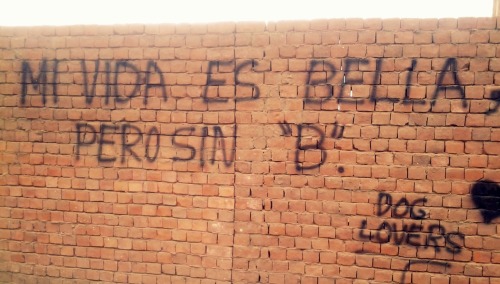 MI VIDA ES BELLA,
PERO SIN "B".
DOG
LOVERS